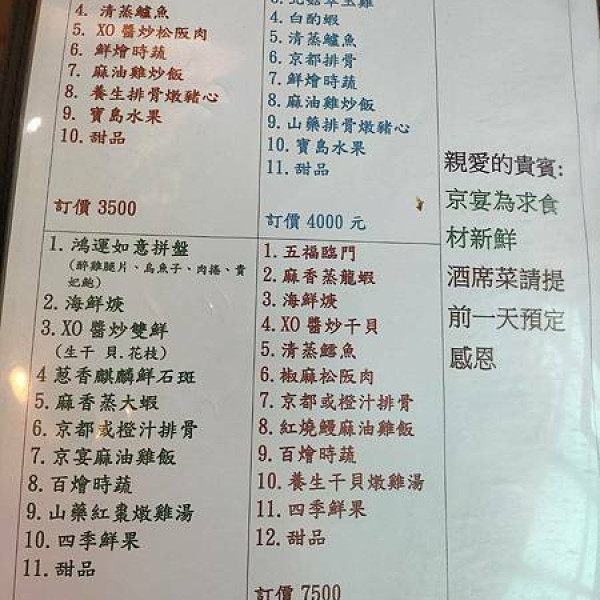 4. 清蒸鱸魚
5. XO 醬炒松阪肉
6. 鮮燴時蔬
7. 麻油雞炒飯
8. 養生排骨燉豬心
9. 寶島水果
10. 甜品
訂價 3500
4. 白酌蝦
5. 清蒸鱸魚
6. 京都排骨
7. 鮮燴時蔬
8. 麻油雞炒飯
9. 山藥排骨燉豬心
10. 寶島水果
11. 甜品
訂價 4000 元
1. 鴻運如意拼盤
(醉雞腿片、烏魚子、肉捲、貴
妃鮑)
2. 海鮮焿
3. XO 醬炒雙鮮
(生干 貝.花枝)
4 蔥香麒麟鮮石斑
5. 麻香蒸大蝦
6. 京都或橙汁排骨
7. 京宴麻油雞飯
8. 百燴時蔬
9. 山藥紅棗燉雞湯
10. 四季鮮果
11. 甜品
1. 五福臨門
2. 麻香蒸龍蝦
3. 海鮮焿
4. XO 醬炒干貝
5. 清蒸鱈魚
6. 椒麻松阪肉
7. 京都或橙汁排骨
8. 紅燒鰻麻油雞飯
9. 百燴時蔬
10. 養生干貝燉雞湯
11. 四季鮮果
12. 甜品
訂價 7500
親愛的貴賓:
京宴為求食
材新鮮
酒席菜請提
前一天預定
感恩